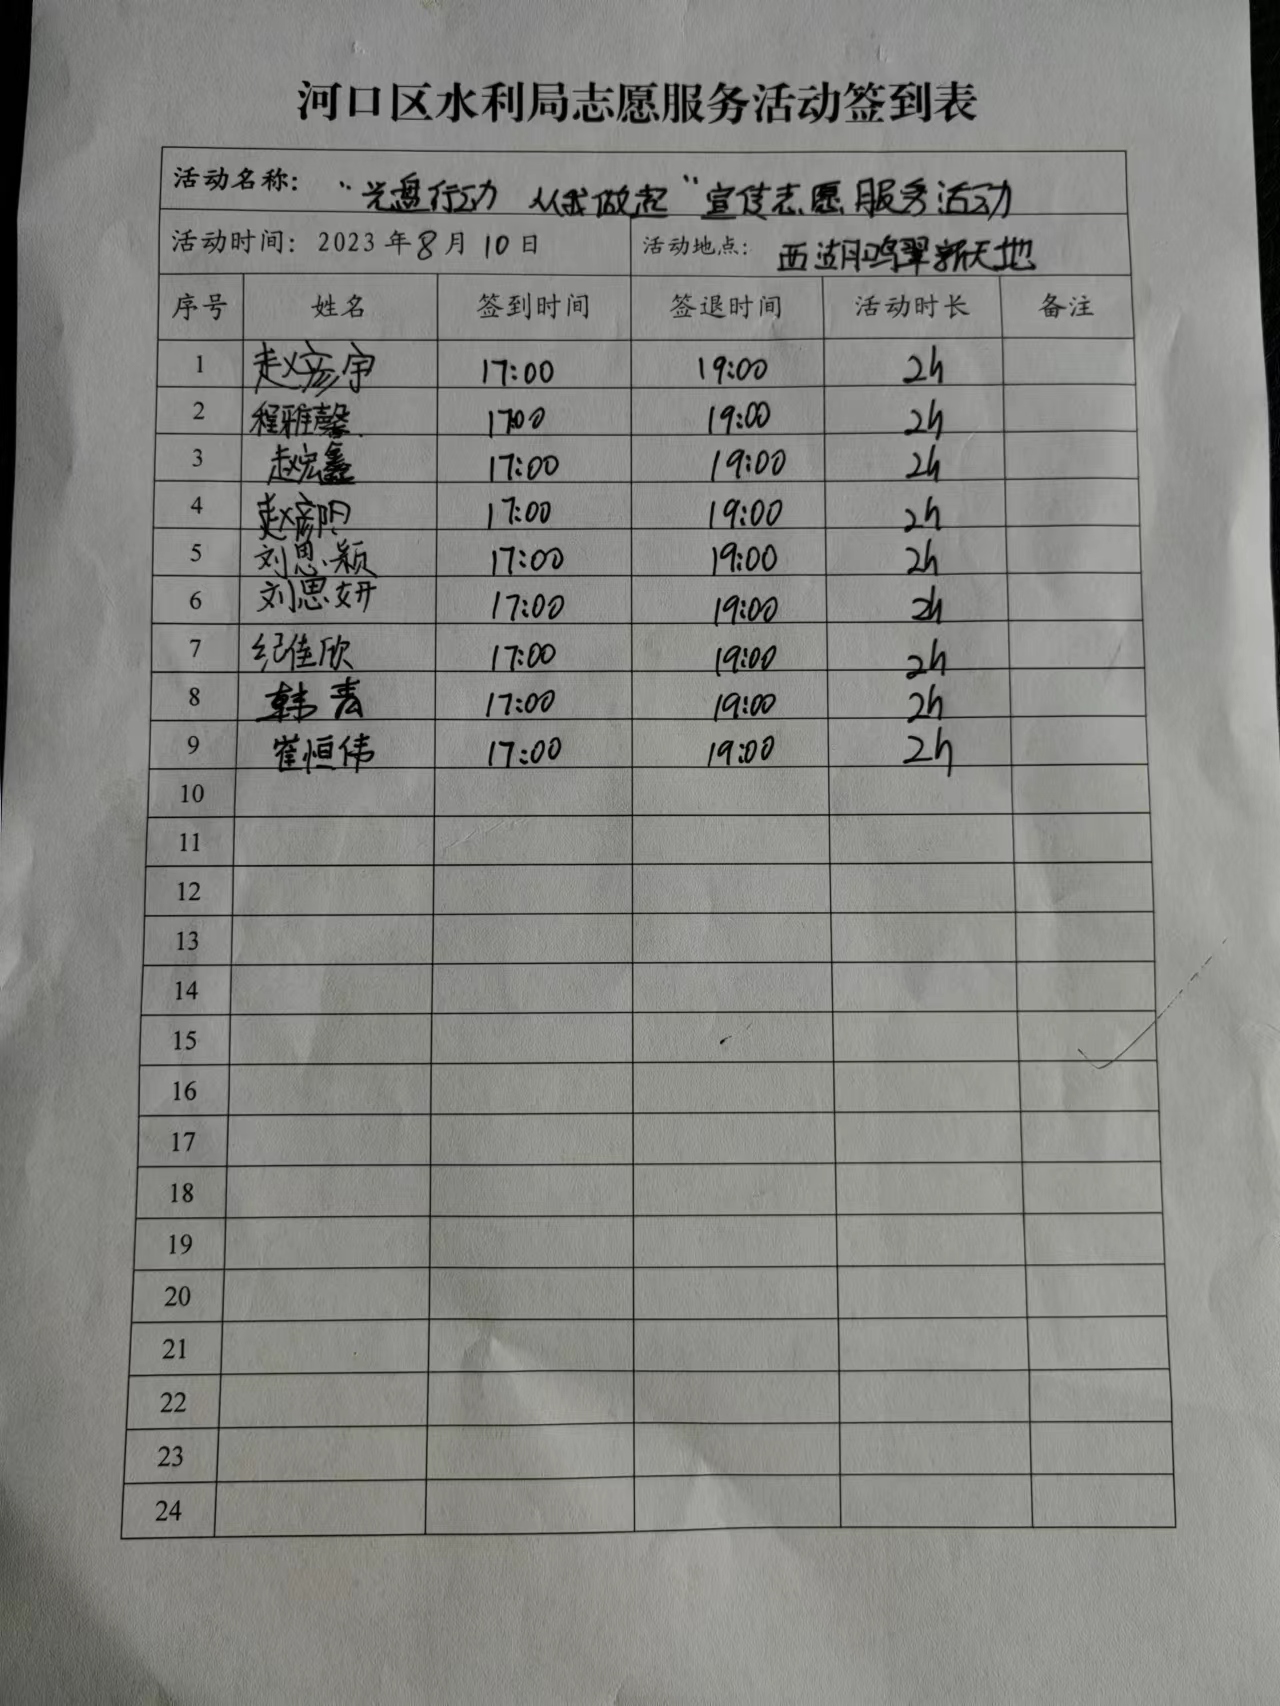 河口区水利局志愿服务活动签到表
活动名称： “光盘行动 从我做起”宣传志愿服务活动
活动时间：2023年8月10日 活动地点： 西湖鸣翠新天地
序号 姓名 签到时间 签退时间 活动时长 备注
1 赵彦宇 17:00 19:00 2h
2 程雅馨 17:00 19:00 2h
3 赵宏鑫 17:00 19:00 2h
4 赵彦明 17:00 19:00 2h
5 刘思颖 17:00 19:00 2h
6 刘思妍 17:00 19:00 2h
7 纪佳欣 17:00 19:00 2h
8 韩 17:00 19:00 2h
9 崔恒伟 17:00 19:00 2h
10
11
12
13
14
15
16
17
18
19
20
21
22
23
24